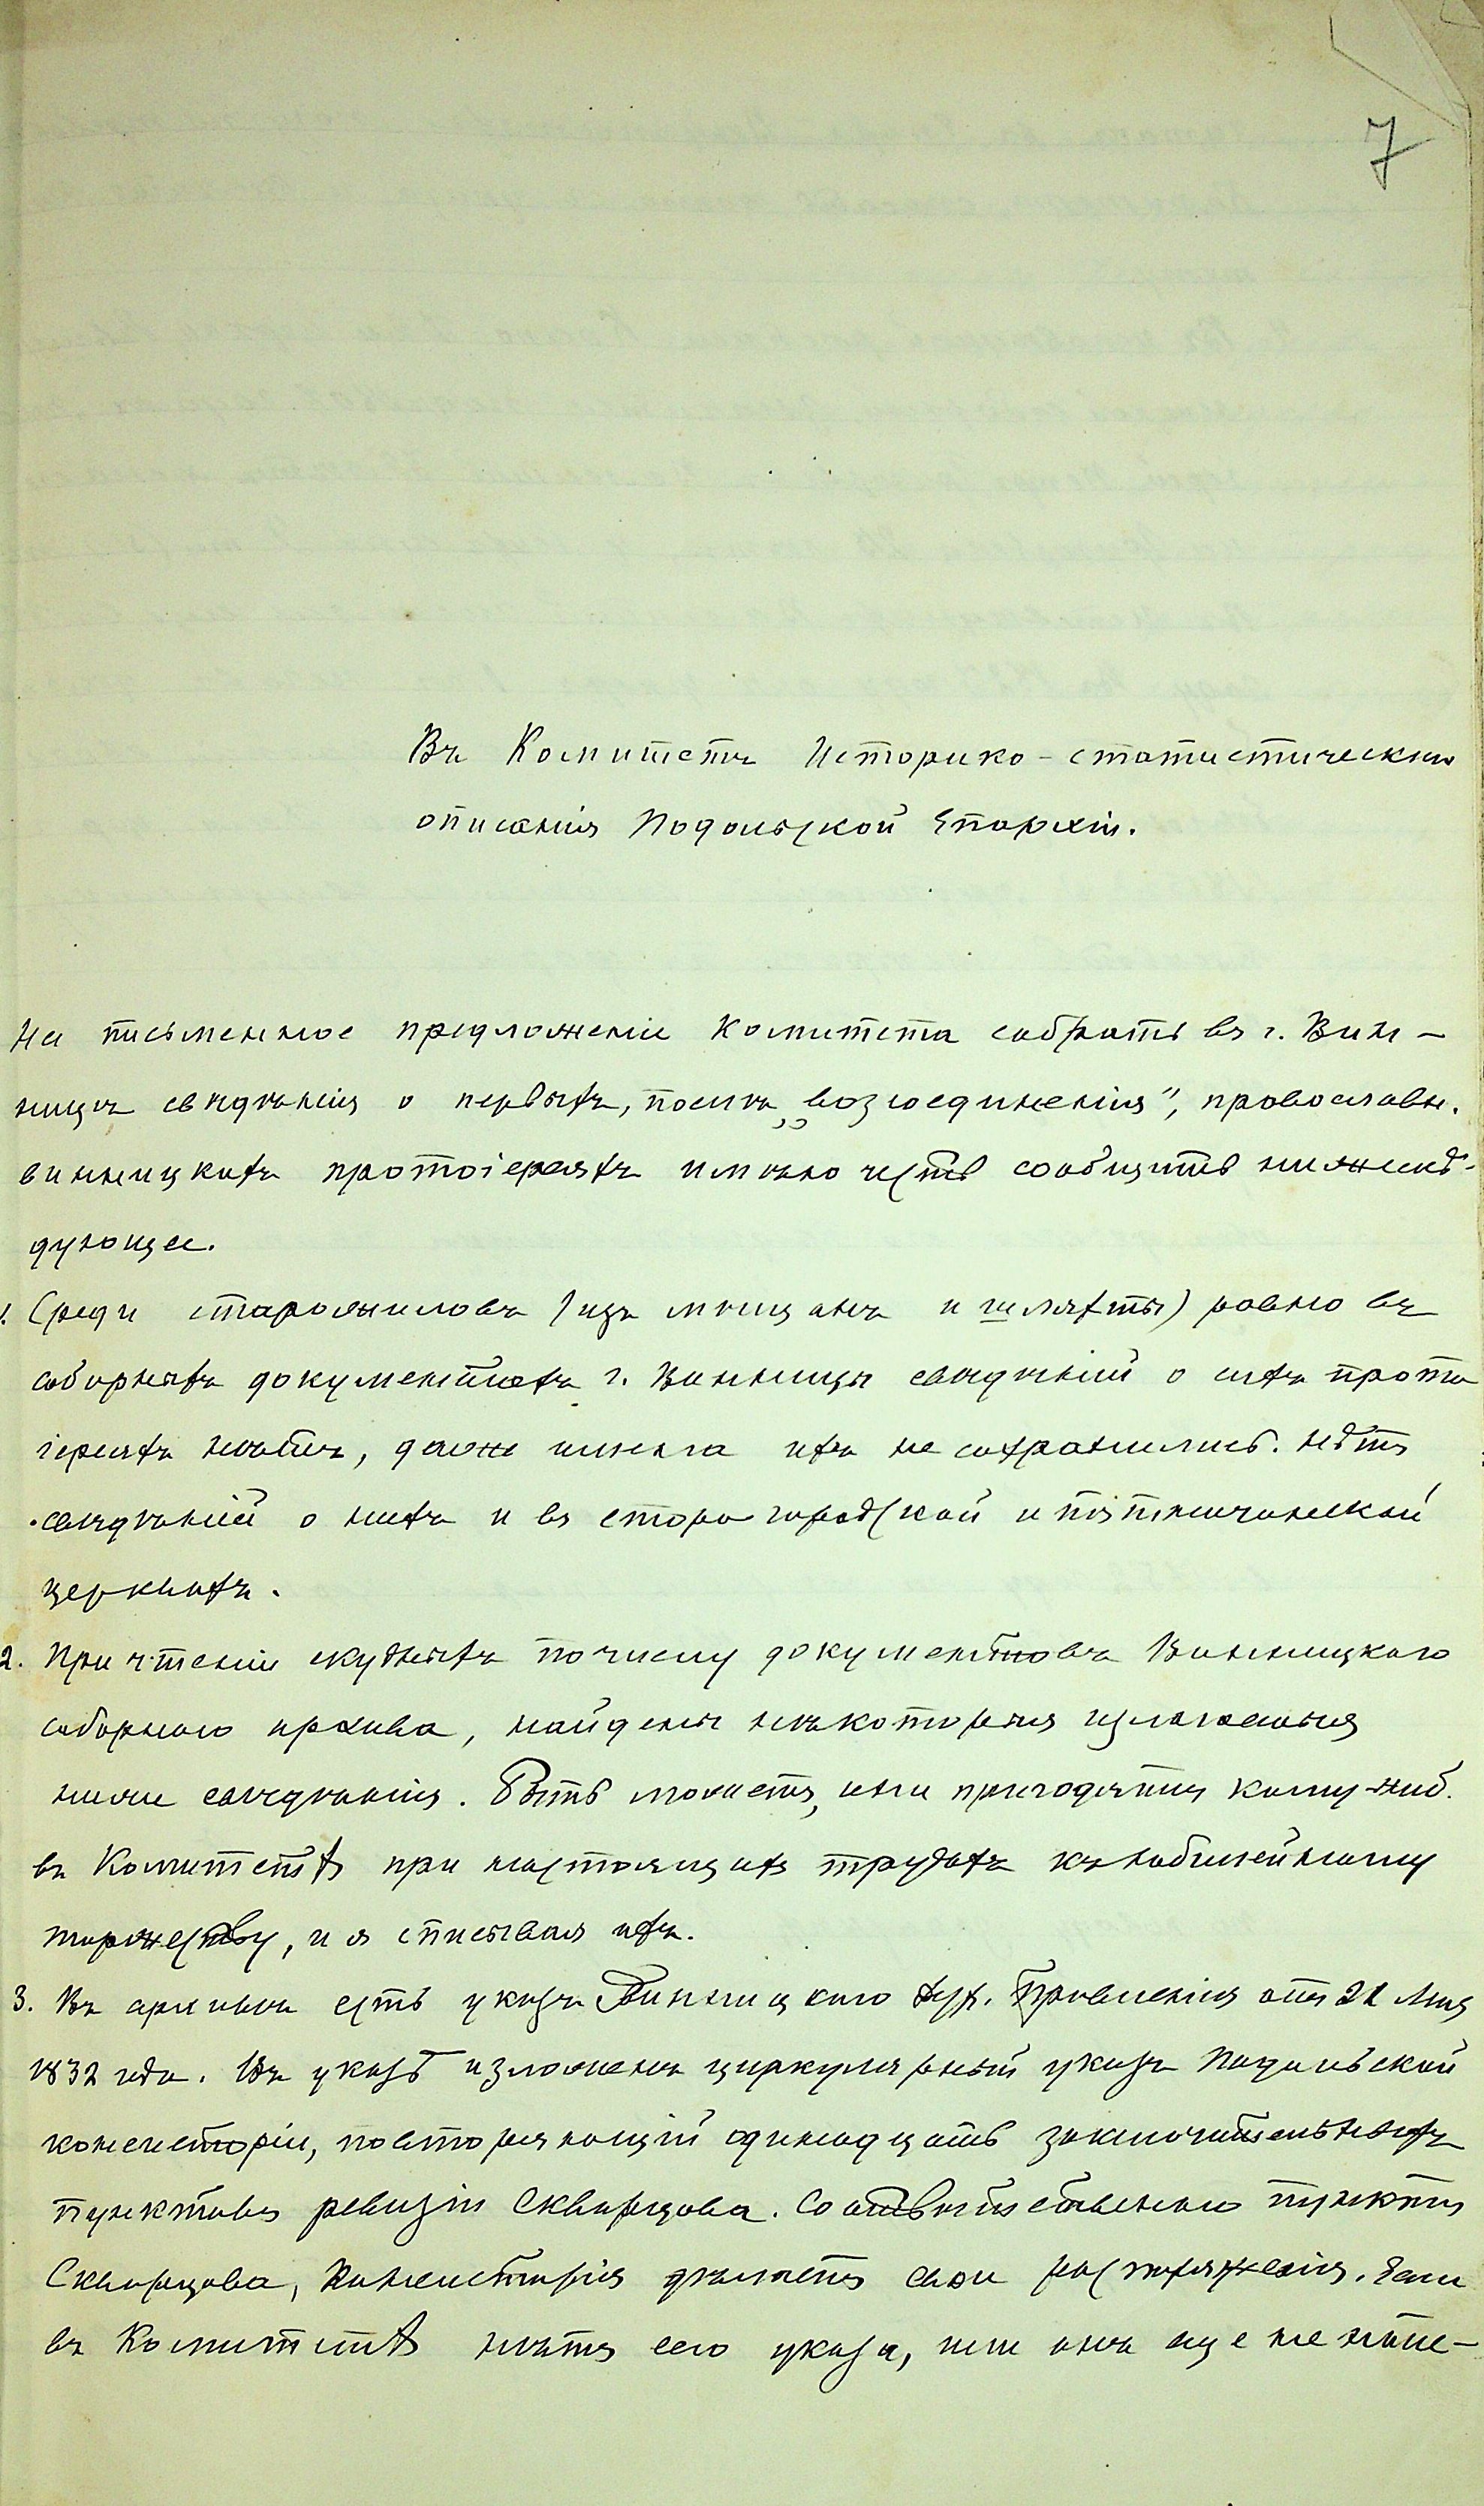 7
Въ Комитетъ Историко-статистическаго
описанія Подольской Епархіи.
На письменное предложеніе Комитета собрать въ г. Вин-
ницѣ свѣдѣнія о первыхъ, послѣ „возсоединенія", православн.
винницкихъ протоіереяхъ имѣю честь сообщить нижеслѣ-
дующее.
1. Среди старожиловъ (изъ мѣщанъ и шляхты) равно въ
соборныхъ документахъ г. Винницы свѣдѣній о сихъ прото
іереяхъ нѣтъ, даже имена ихъ не сохранились. Нѣтъ
свѣдѣній о нихъ и въ старогородской и пятничанской
церквахъ.
2. При чтеніи скудныхъ по числу документовъ Винницкаго
соборнаго архива, найдены нѣкоторыя излагаемыя
ниже свѣдѣнія. Быть можетъ, они пригодятся кому-ниб.
въ Комитетѣ при настоящихъ трудахъ къ юбилейному
торжеству, и я списываю ихъ.
3. Въ архивѣ есть указъ Винницкаго Дух. Правленія отъ 21 Мая
1832 года. Въ указѣ изложенъ циркулярный указъ Подольской
консисторіи, повторяющій одинадцать заключительныхъ
пунктовъ ревизіи Скворцова. Соотвѣтственно пункту
Скворцова, Консисторія дѣлаетъ свои распоряженія. Если
въ Комитетѣ нѣтъ сего указа, или онъ еще не напе-